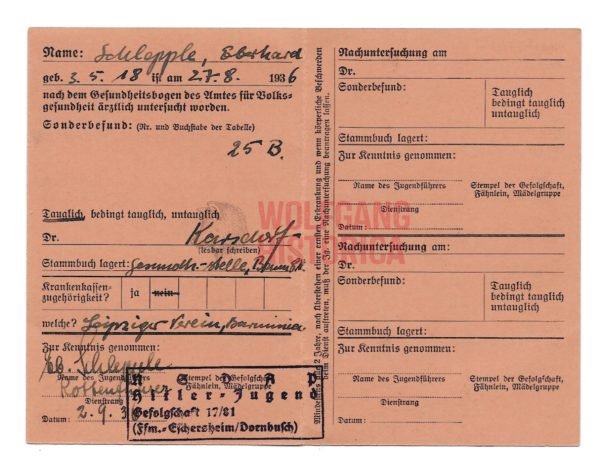 Name: Schlepple, Eberhard
geb. 3. 5. 18 ist am 27. 8. 1936
nach dem Gesundheitsbogen des Amtes für Volks-
gesundheit ärztlich untersucht worden.
Sonderbefund: (Nr. und Buchstabe der Tabelle)
25 B.
Tauglich, bedingt tauglich, untauglich
Dr. Karsdorf
(lesbar schreiben)
Stammbuch lagert:
Krankenkassen-
zugehörigkeit? ja nein
welche? Leipziger Verein, Barmenia
Zur Kenntnis genommen:
Eb. Schlepple
Name des Jugendführers
Stempel der Gefolgschaft,
Fähnlein, Mädelgruppe
Dienstrang
Datum: 2. 9. 3
N S D A P
Hitler-Jugend
Gefolgschaft 17/81
(Ffm.-Eschersheim/Dornbusch)
Mindestens 2 Jahre, nach Überstehen einer ernsten Erkrankung und wenn körperliche Beschwerden
beim Dienst auftreten, muß der Jg. eine Nachuntersuchung beantragen lassen.
WOLFGANG
HISTORICA
Nachuntersuchung am
Dr.
Sonderbefund:
Tauglich
bedingt tauglich
untauglich
Stammbuch lagert:
Zur Kenntnis genommen:
Name des Jugendführers
Dienstrang
Stempel der Gefolgschaft,
Fähnlein, Mädelgruppe
Datum:
Nachuntersuchung am
Dr.
Sonderbefund:
Tauglich
bedingt tauglich
untauglich
Stammbuch lagert:
Zur Kenntnis genommen:
Name des Jugendführers
Dienstrang
Stempel der Gefolgschaft,
Fähnlein, Mädelgruppe
Datum: